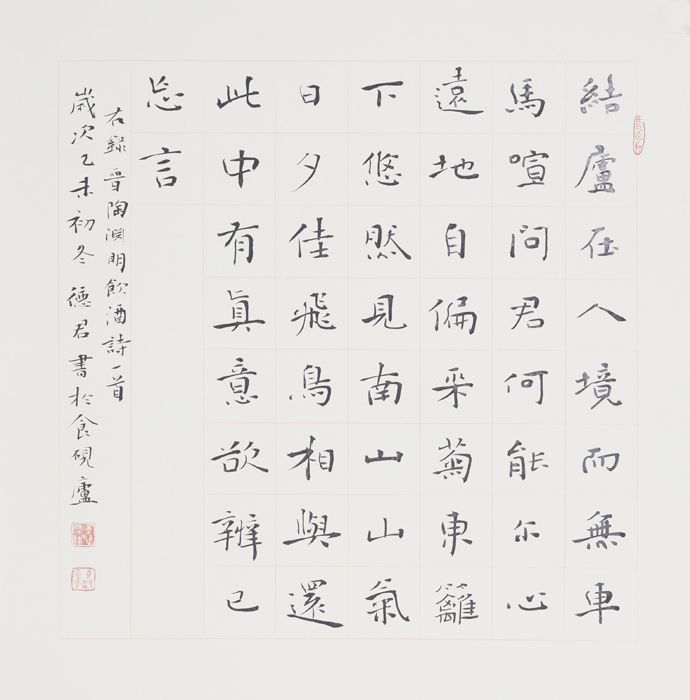 結廬在人境而無車
馬喧問君何能尔心
遠地自偏采菊東籬
下悠然見南山山氣
日夕佳飛鳥相與還
此中有眞意欲辨已
忘言
右錄晉陶淵明飲酒詩一首
歲次乙未初冬德君書於食硯廬